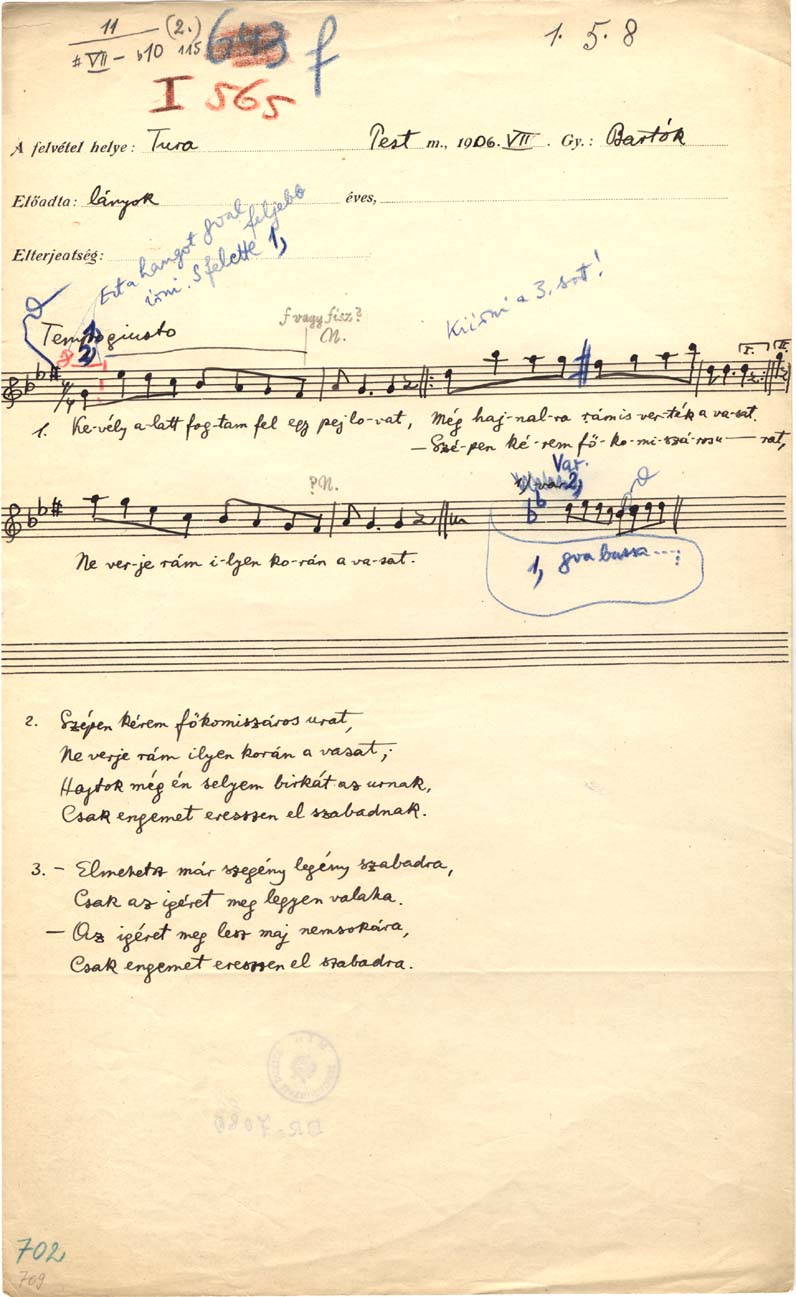 11 (2.) 643 f 1. 5. 8
# VII – b10 115
I 565
A felvétel helye: Tura Pest m., 1906. VII. Gy.: Bartók
Előadta: lányok éves,
Elterjeatség:
Ezt a hangot 8val feljebb
irni. S felette 1,
Kiirni a 3. sort!
f vagy fisz?
N.
Tempo giusto
2)
1. Ke-vély a-latt fog-tam fel egy pej lo-vat, Még haj-nal-ra rámis ver-ték a va-sat.
– Szé-pen ké-rem fő-ko-mi-szárosu–rat,
?N.
Var.
2,
Ne ver-je rám i-lyen ko-rán a va-sat.
1, 8va bassa ---;
2. Szépen kérem főkomiszáros urat,
Ne verje rám ilyen korán a vasat,;
Hajtok még én selyem birkát az urnak,
Csak engemet eresszen el szabadnak.
3. – Elmehetsz már szegény legény szabadra,
Csak az igéret meg legyen valaha.
– Az igéret meg lesz maj nemsokára,
Csak engemet eresszen el szabadra.
702
709